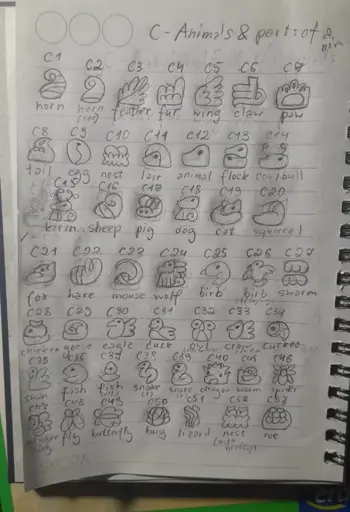 C - Animals & parts of a nim
C1 C2 C3 C4 C5 C6 C7
horn horn feather fur wing claw paw
C8 C9 C10 C11 C12 C13 C14
tail egg nest lair animal flock cow/bull
C15 C16 C17 C18 C19 C20
sheep pig dog cat squirrel
C21 C22 C23 C24 C25 C26 C27
fox hare mouse wolf birb birb swarm
C28 C29 C30 C31 C32 C33 C34
chicken goose eagle duck crow cuckoo
C35 C36 C37 C38 C39 C40 C45 C46
fish fish snake snake worm spider
C48 C49 C50 C51 C52 C53
fly butterfly bug lizard nest roe